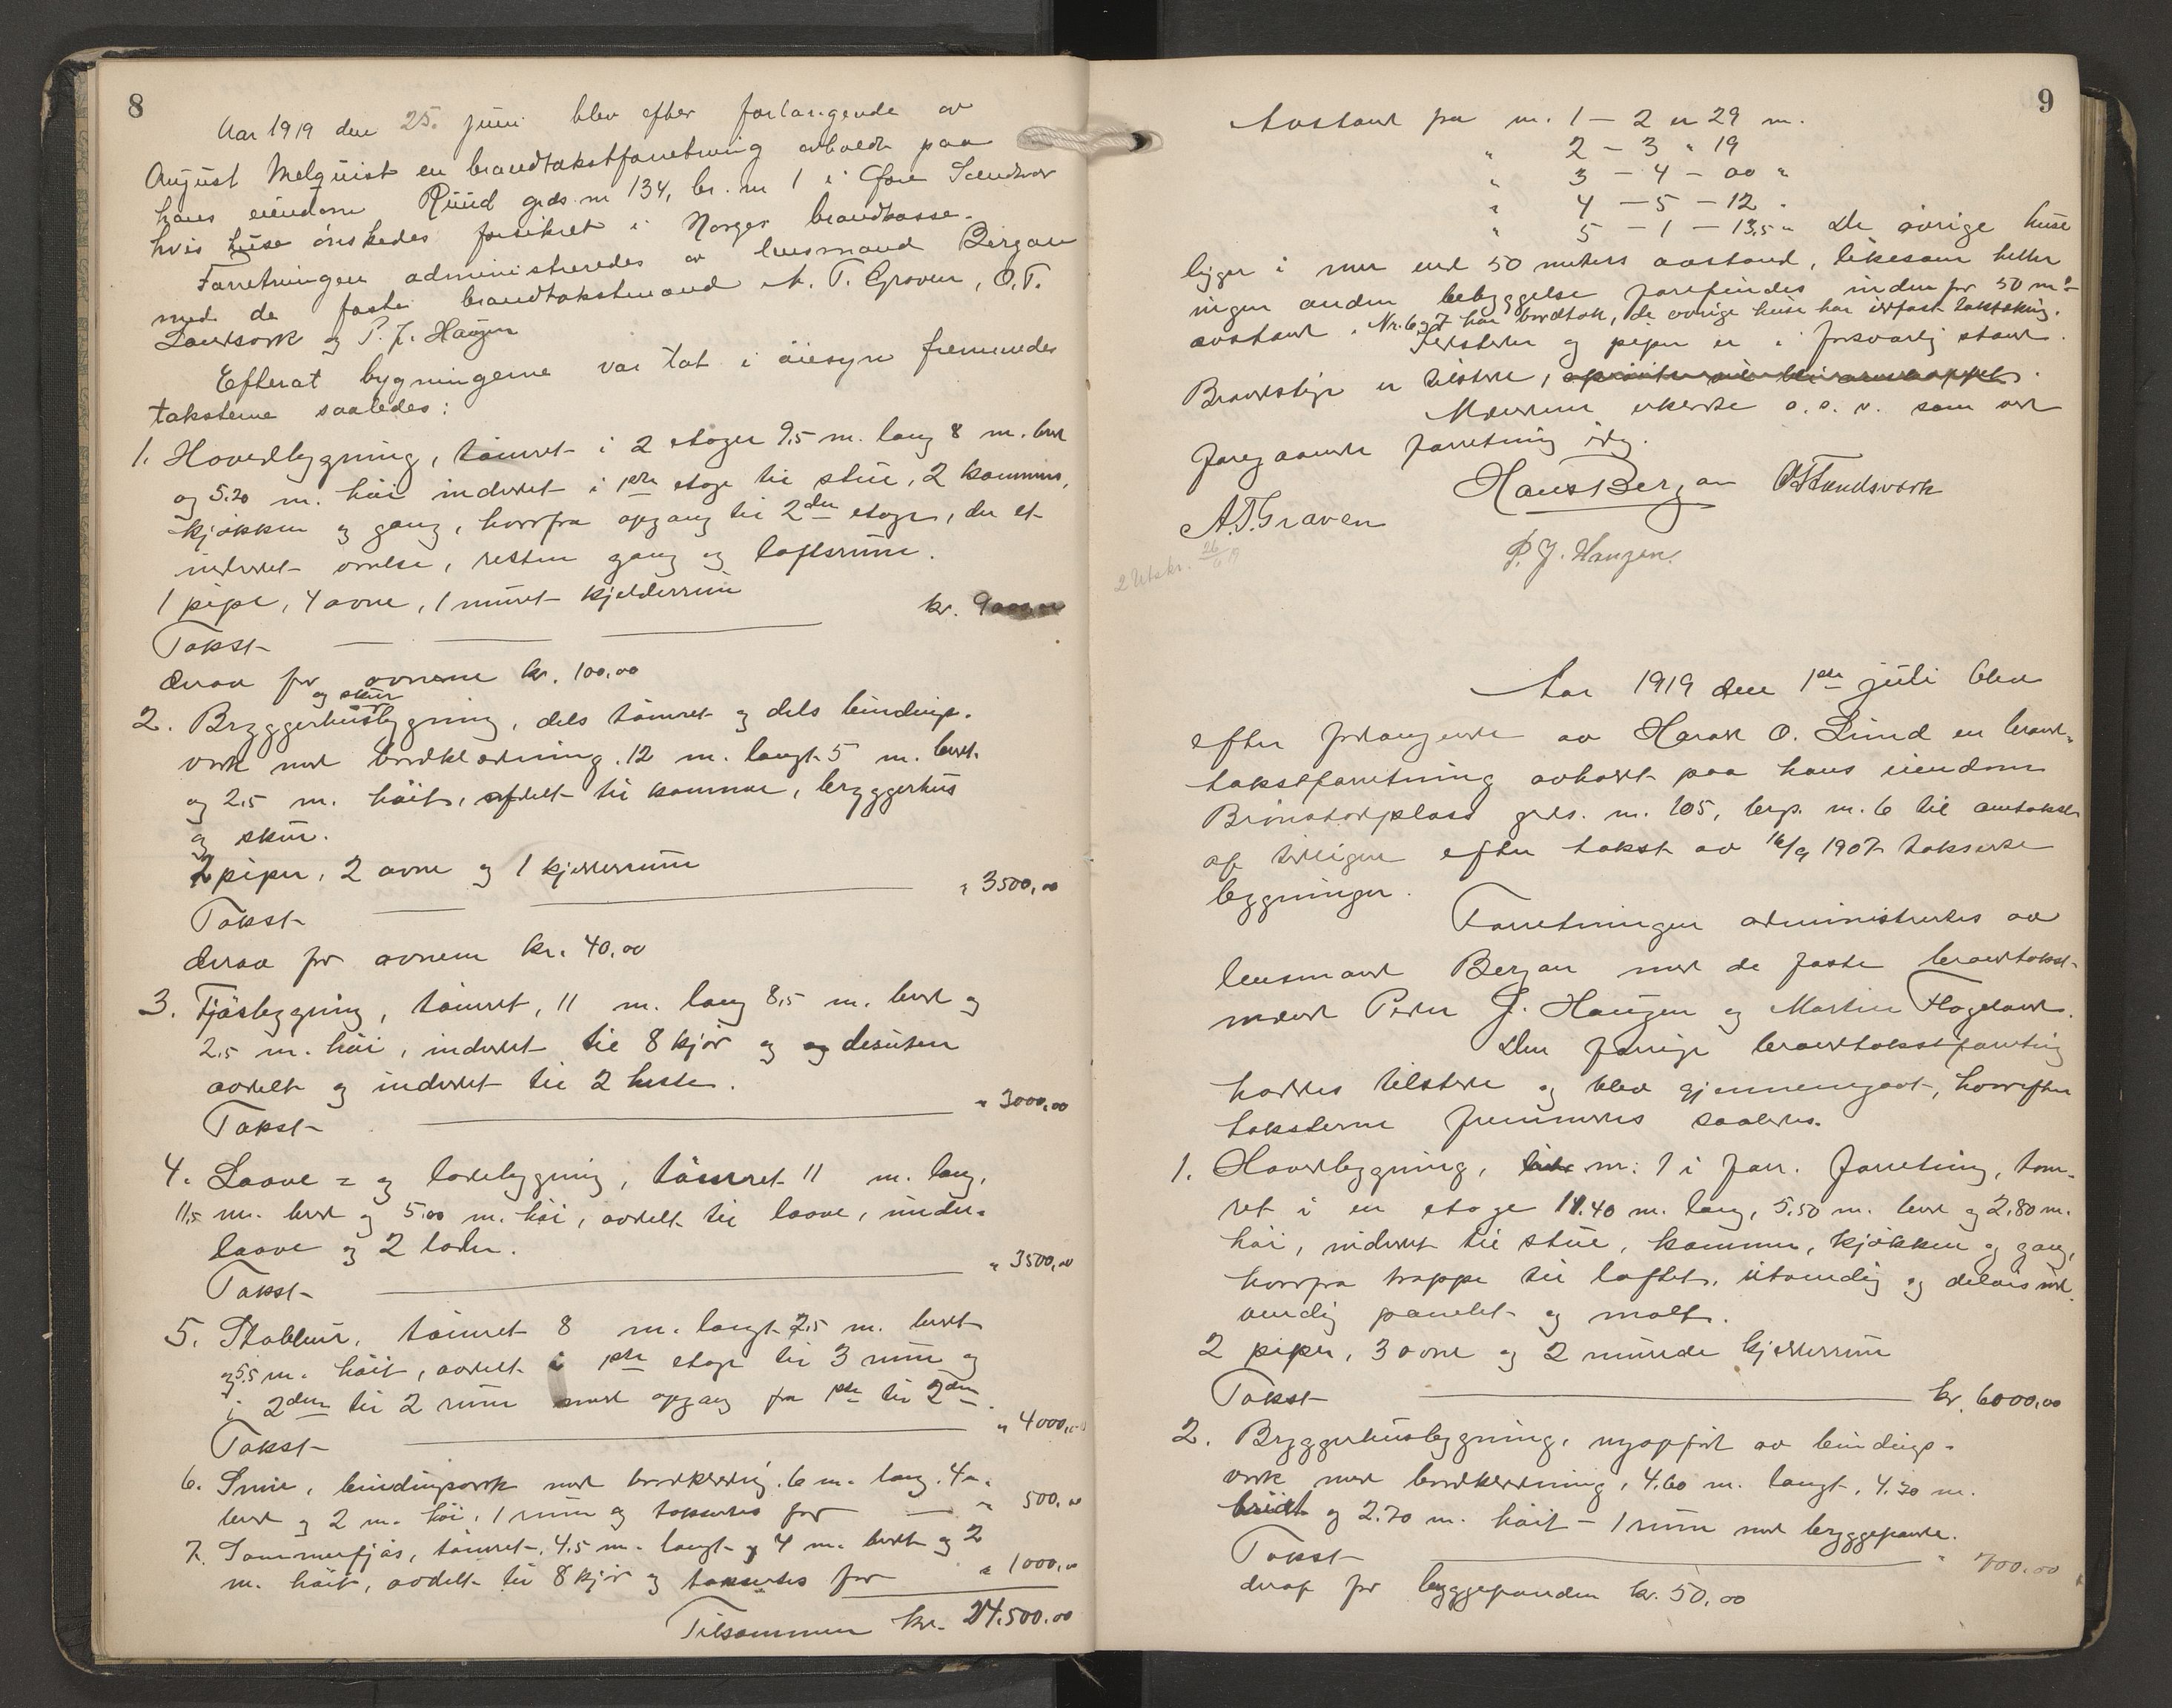 8
Aar 1919 den 25. juni blev efter forlangende av
August Melquist en brandtakstforretning avholdt paa
hans eiendom Ruud grds. nr 134, br. nr 1 i Øvre Sandsvær
hvis huse ønskedes forsikret i Norges brandkasse.
Forretningen administreredes av lensmand Bergan
med de faste brandtakstmænd A. T. Graven, O.T.
Landsverk og P. J. Haugen
Efterat bygningerne var tat i øiesyn fremmedes
taksterne saaledes:
1. Hovedbygning, tømret i 2 etager 9,5 m. lang 8 m. bred
og 5.20 m. høi inderet i 1ste etage til stue, 2 kammers,
kjøkken og gang, hvorfra opgang til 2den etage, der et
inderet værelse, resten gang og loftsrum.
1 pipe, 4 ovne, 1 muret kjelderrum
Takst kr. 9000,00
derav for ovnene kr. 100,00
og skur
2. Bryggerhusbygning, dels tømret og dels bindings-
verk med bordklædning. 12 m. langt 5 m. bredt
og 2,5 m. høit, avdelt til kammer, bryggerhus
og skur.
2 piper, 2 ovne og 1 kjelderrum
Takst " 3500,00
derav for ovnene kr. 40,00
3. Fjøsbygning, tømret, 11 m. lang 8,5 m. bred og
2,5 m. høi, inderet til 8 kjør og og desuten
avdelt og inderet til 2 heste.
Takst " 3000,00
4. Laave- og ladebygning, tømret 11 m. lang,
11,5 m. bred og 5,00 m. høi, avdelt til laave, under-
laave og 2 lader.
Takst " 3500,00
5. Stabbur, tømret 8 m. langt 7,5 m. bredt
og 5,5 m. høit, avdelt i 1ste etage til 3 rum og
i 2den til 2 rum med opgang fra 1ste til 2den.
Takst " 4000,00
6. Smie, bindingsverk med bordklædnig. 6 m. lang. 4 m.
bred og 2 m. høi, 1 rum og takseres for " 500,00
7. Sommerfjøs, tømret, 4.5 m. langt og 4 m. bredt og 2
m. høit, avdelt til 8 kjør og takseres for " 1000,00
Tilsammen kr. 24.500.00
9
Avstand fra nr. 1 – 2 er 29 m.
" 2 – 3 " 19
" 3 – 4 – 00 "
" 4 – 5 – 12 "
" 5 – 1 – 13,5 " De øvrige huse
ligger i mer end 50 meters avstand, likesom heller
ingen anden bebyggelse forefindes inden for 50 m's
avstand. Nr. 6 og 7 har bordtak, de øvrige huse har ildfast taktekning.
Ildsteder og piper er i forsvarlig stand.
Brandstige er tilstede,
Mændene erklærte o.s.v. som ved
foregaaende forretning idg.
Hans Bergan OTLandsverk
A.T.Graven
P. J. Haugen.
2 Utskr. 26/6 19
Aar 1919 den 1ste juli blev
efter forlangende av Harald O. Lund en brand-
takstforretning avholdt paa hans eiendom
Brønstadplass grds. nr. 105, brp. nr. 6 til omtakst
af tidligere efter takst av 16/9 1907 takserte
bygninger.
Forretningen administrertes av
lensmand Bergan med de faste brandtakst-
mænd Peder J. Haugen og Martin Flogeland.
Den forrige brandtakstforretnig
haddes tilstede og blev gjennemgaat, hvorefter
taksterne fremmedes saaledes.
1. Hovedbygning, nr. 1 i forr. forretning, tøm-
ret i en etage 11.40 m. lang, 5.50 m. bred og 2.80 m.
høi, inderet til stue, kammer, kjøkken og gang,
hvorfra trappe til loftet, utvendig og delvis ind-
vendig panelet og malt.
2 piper, 3 ovne og 2 murede kjelderrum
Takst kr. 6000,00
2. Bryggerhusbygning, nyopført av bindings-
verk med bordklædning, 4.60 m. langt, 4.30 m.
bredt og 2.70 m. høit – 1 rum med bryggepande.
Takst " 700,00
deraf for bryggepanden kr. 50,00